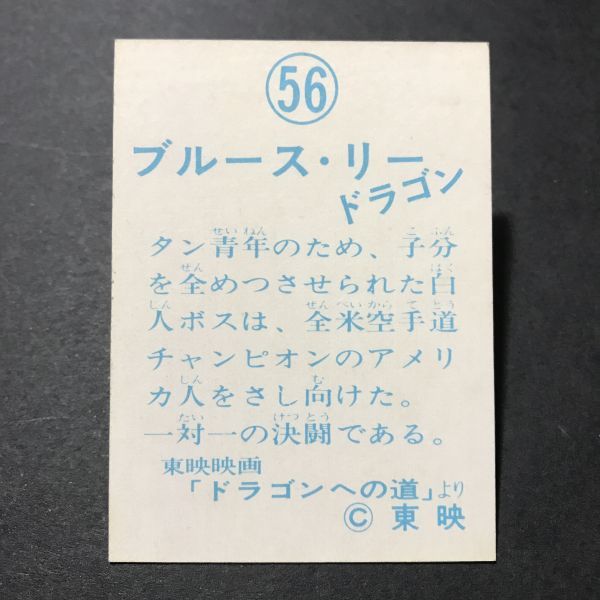 56
ブルース・リー
ドラゴン
タン青年のため、子分
を全めつさせられた白
人ボスは、全米空手道
チャンピオンのアメリ
カ人をさし向けた。
一対一の決闘である。
東映映画
「ドラゴンへの道」より
© 東映